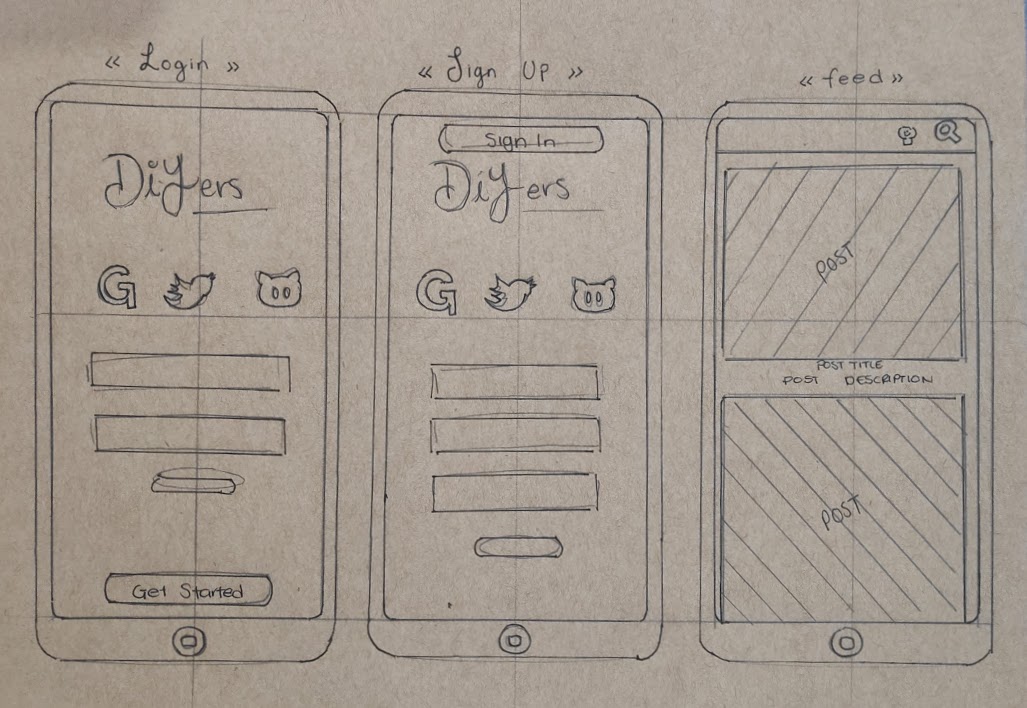 « Login »
DiYers
G
Get Started
« Sign Up »
Sign In
DiYers
G
« feed »
POST
POST TITLE
POST DESCRIPTION
POST